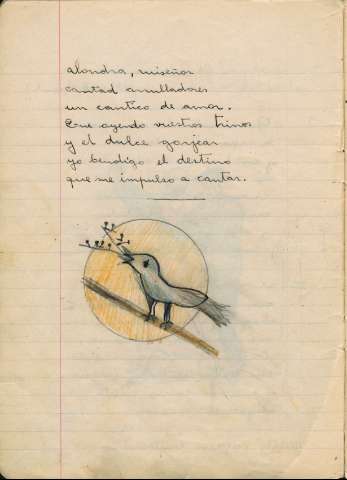 alondra, ruiseñor
cantad arrulladores
un cantico de amor.
Que oyendo vuestros trinos
y el dulce gorjear
yo bendigo el destino
que me impulso a cantar.